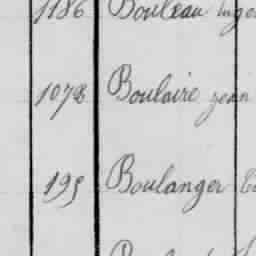 1186 Bouleau
1078 Boulaire Jean
195 Boulanger